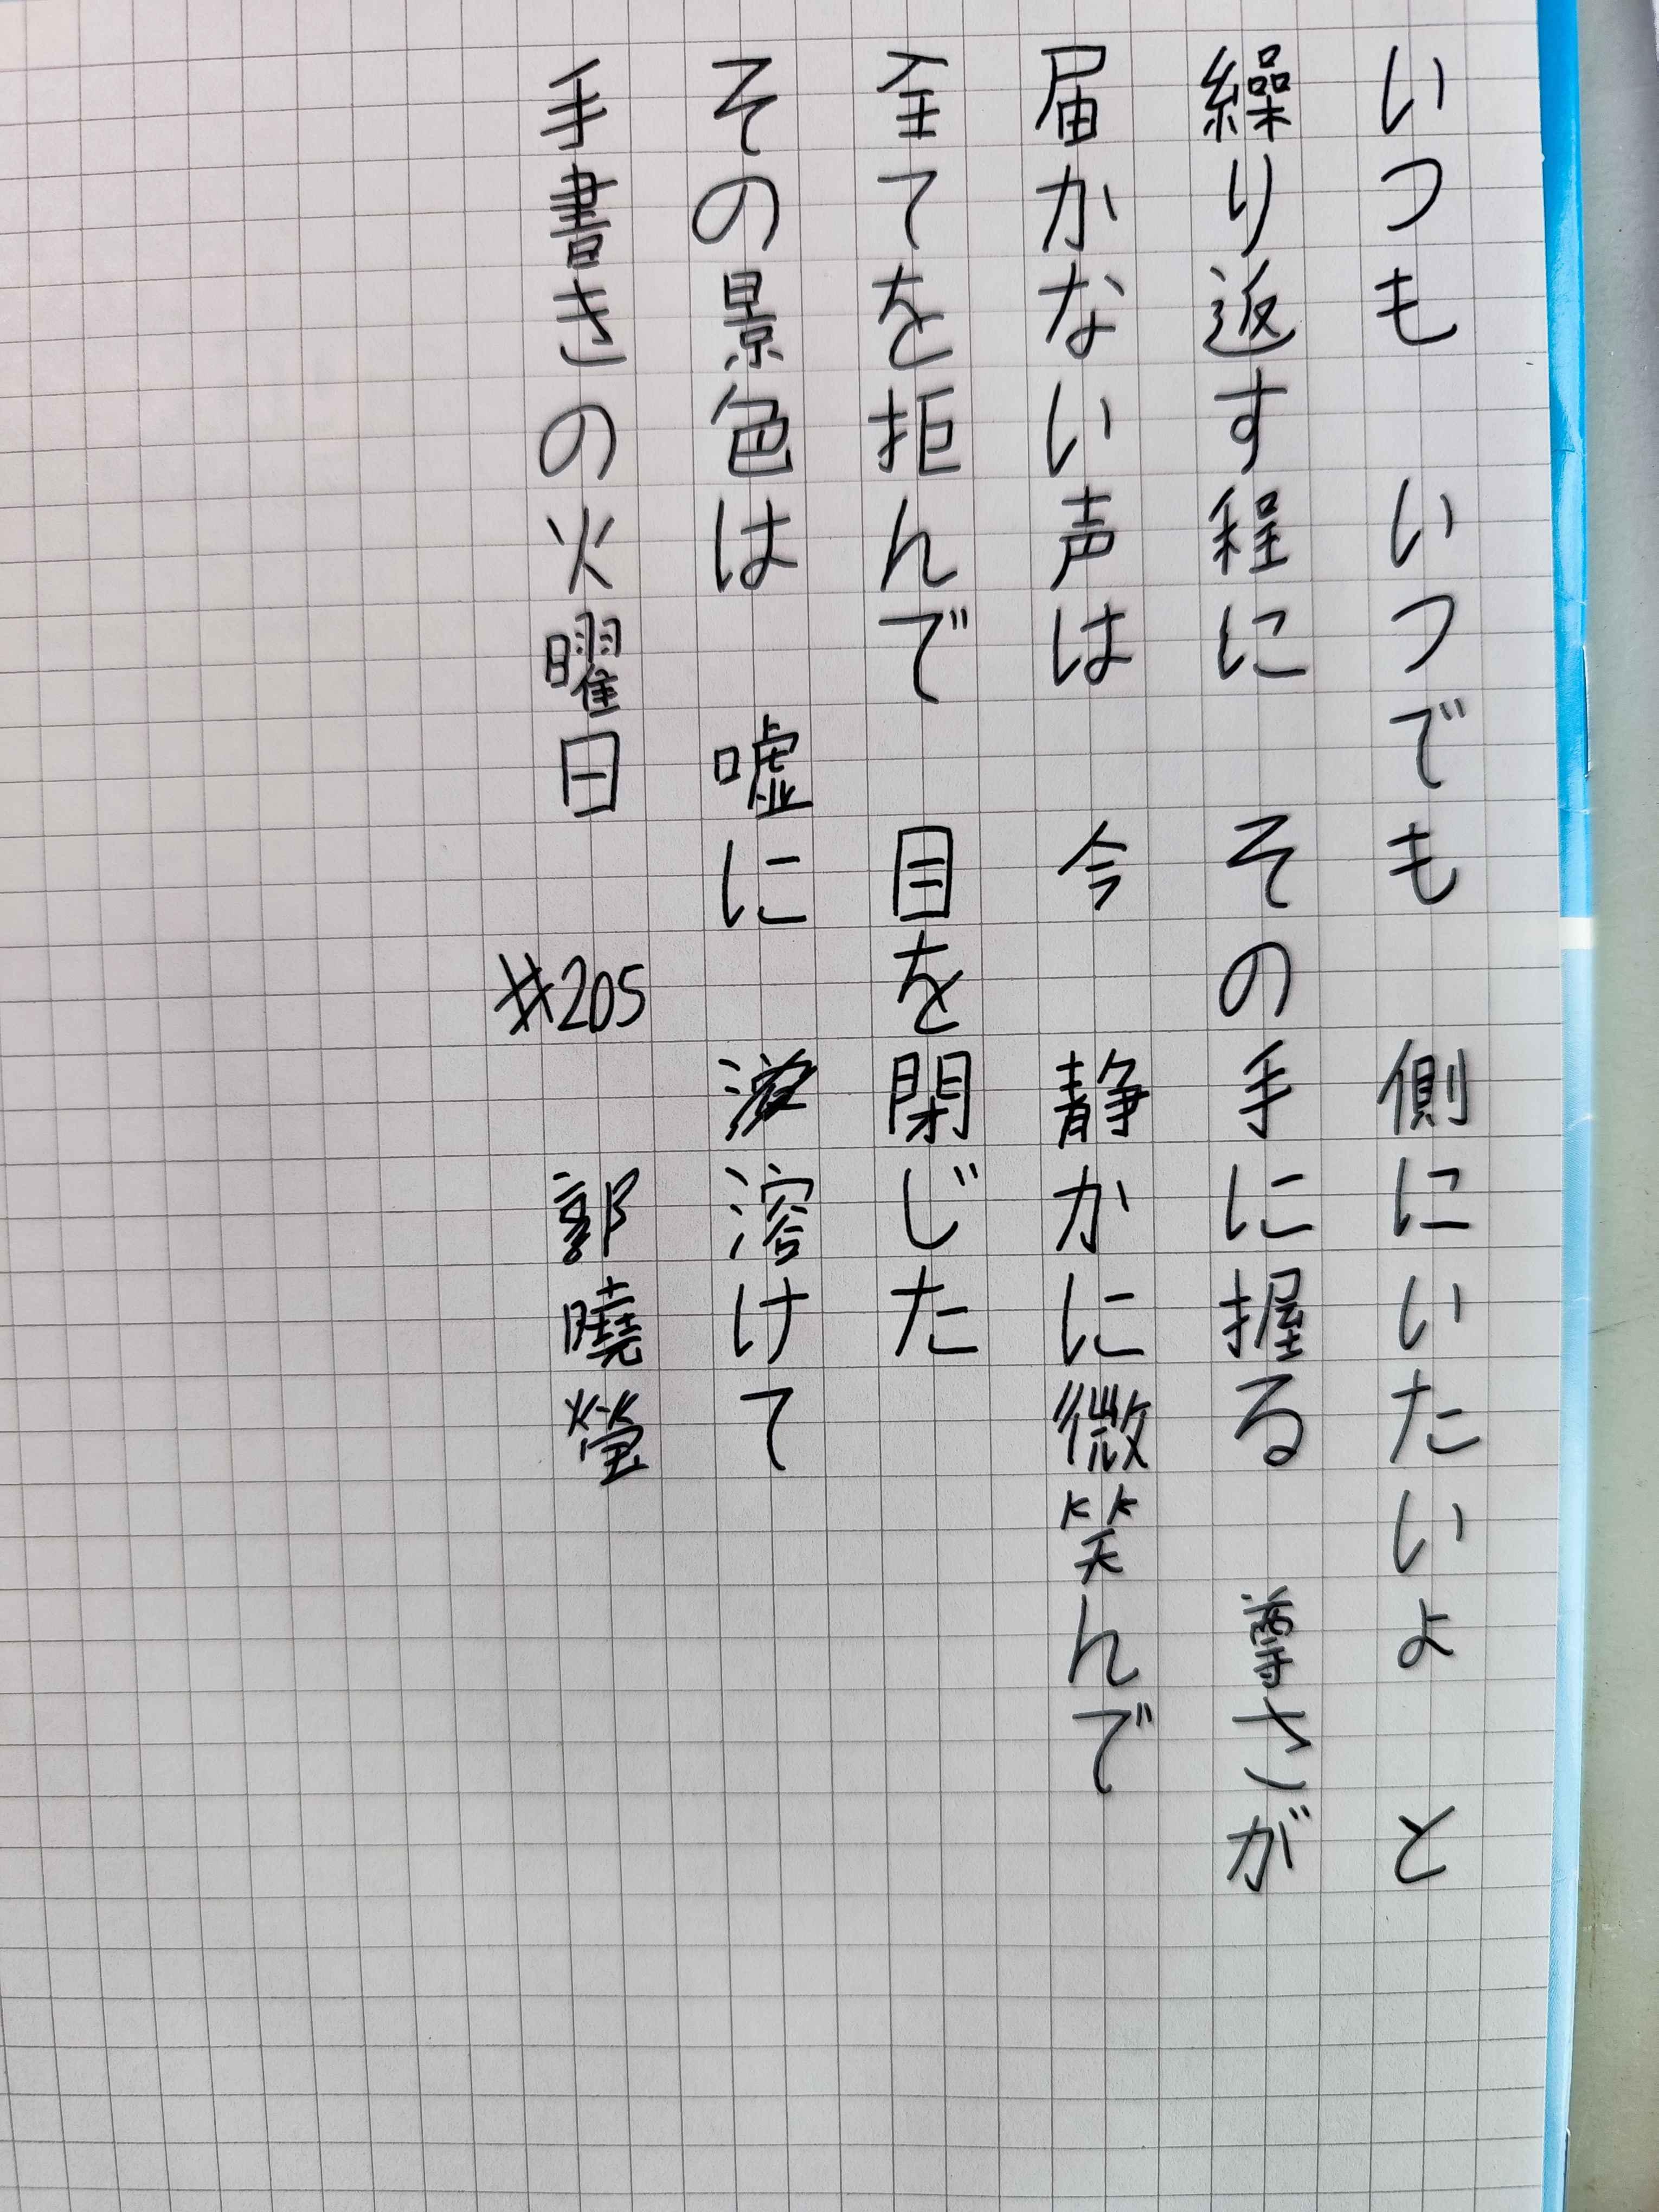 いつも いつでも 側にいたいよ と
繰り返す程に その手に握る さが
届かない声は 今 静かに微笑んで
全てを拒んで 目を閉じた
その景色は 嘘に 溶けて
手書きの火曜日 #205 郭曉瑩